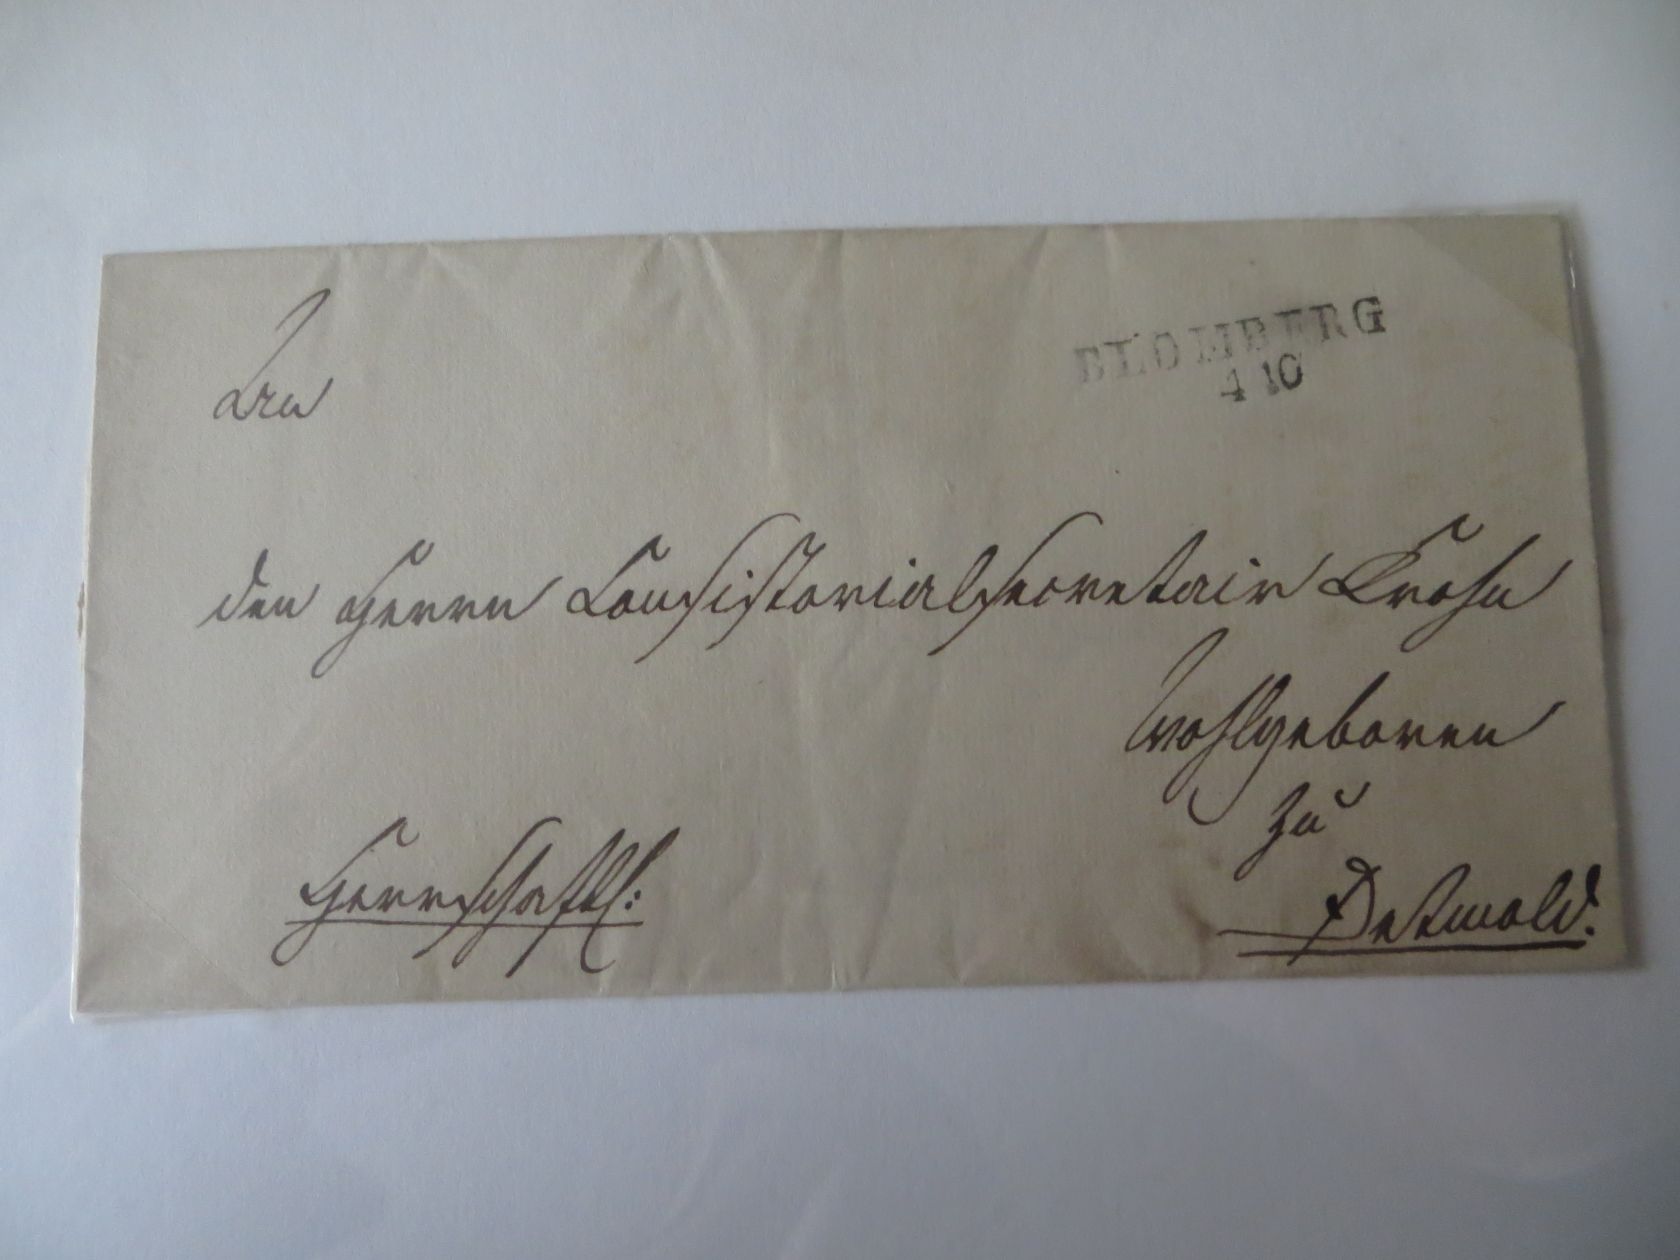 BLOMBERG
4 10
An
den Herrn Consistorialsecretair Krohn
Wohlgeboren
zu
Detmold.
Herrschaftl: